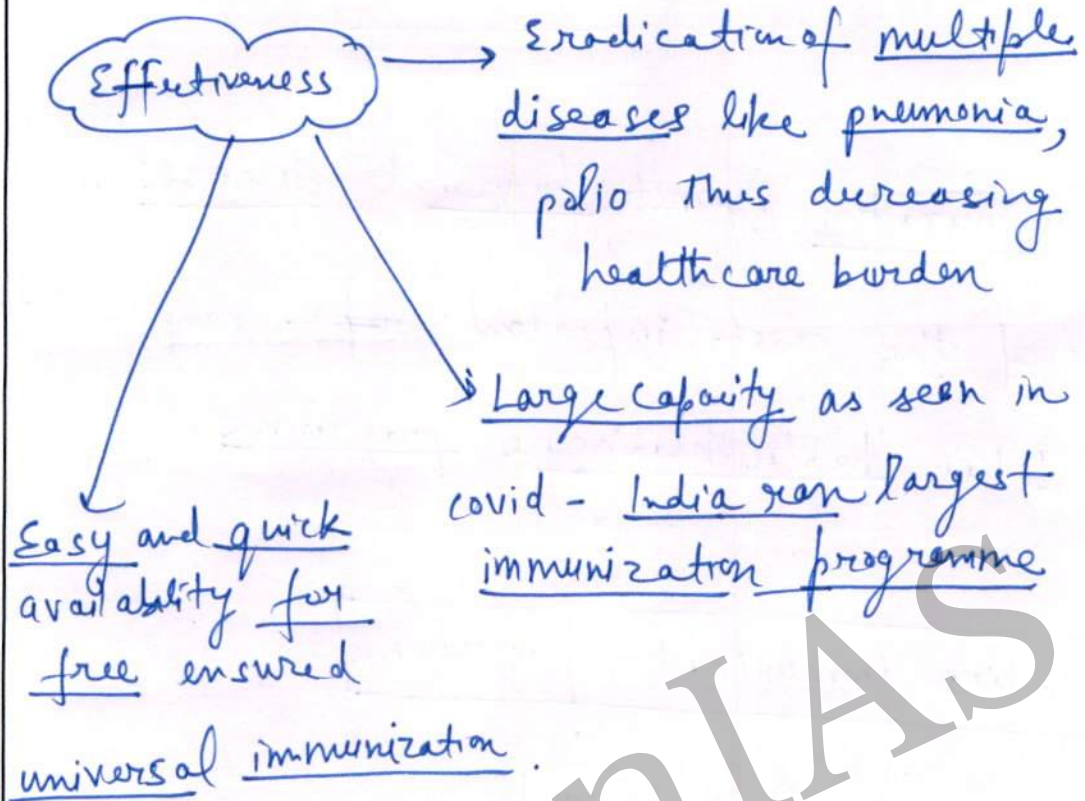 Effetiveness
Eradication of multiple
diseases like pneumonia,
polio thus decreasing
healthcare burden
Large capacity as seen in
covid - India ran largest
immunization programme
Easy and quick
availability for
free ensured
universal immunization.
nIAS